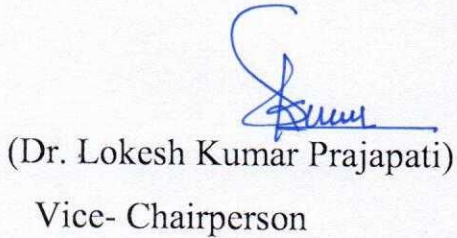 (Dr. Lokesh Kumar Prajapati)
Vice- Chairperson